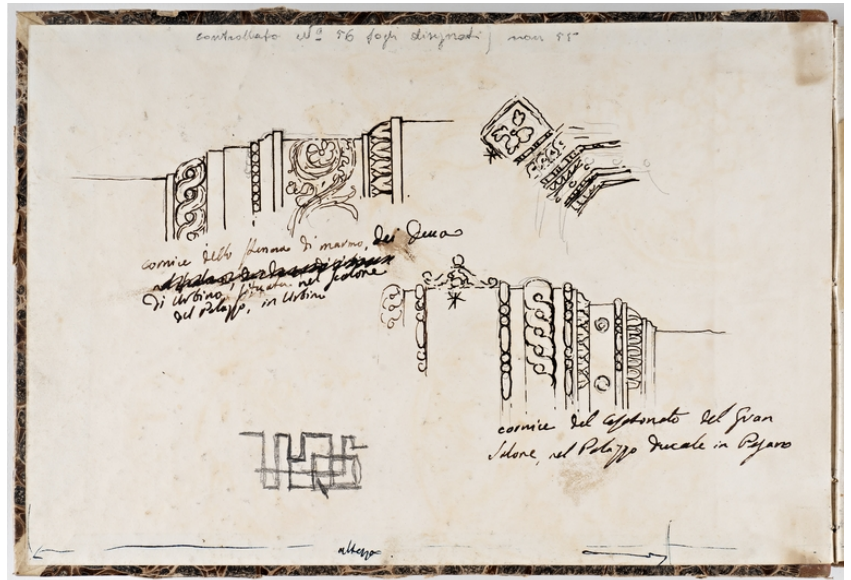 controllato Nº 56 fogli disegnati, non 55
cornice dello stemma di marmo, dei Duca
di Urbino, situata nel salone
del Palazzo, in Urbino
cornice del cassettonato del Gran
Salone, nel Palazzo Ducale in Pesaro
altezza